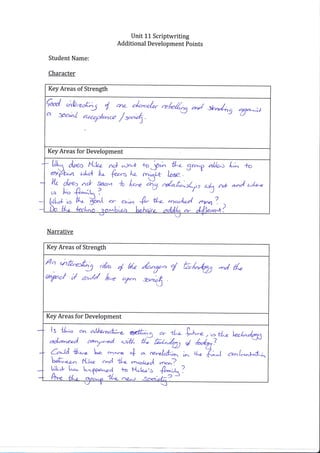 Unit 11 Scriptwriting
Additional Development Points
Student Name:
Character
Key Areas of Strength
Good interesting of one character rebelling and standing against
a social acceptance / society.
Key Areas for Development
- Why does Mike not want to join the group allow him to
explain what he fears he might lose.
- He does not seem to have any relationships why not and where
is his family?
- What is the goal or aim for the masked man?
- Do the techno zombies behave oddly or different?
Narrative
Key Areas of Strength
An interesting idea of the dangers of technology and the
impact it could have upon society.
Key Areas for Development
- Is this an alternative setting or the future, is the technology
advanced compared with the technology of today?
- Could there be more of a revelation in the final confrontation
between Mike and the masked man?
- What has happened to Mike's family?
- Are the group the new society?